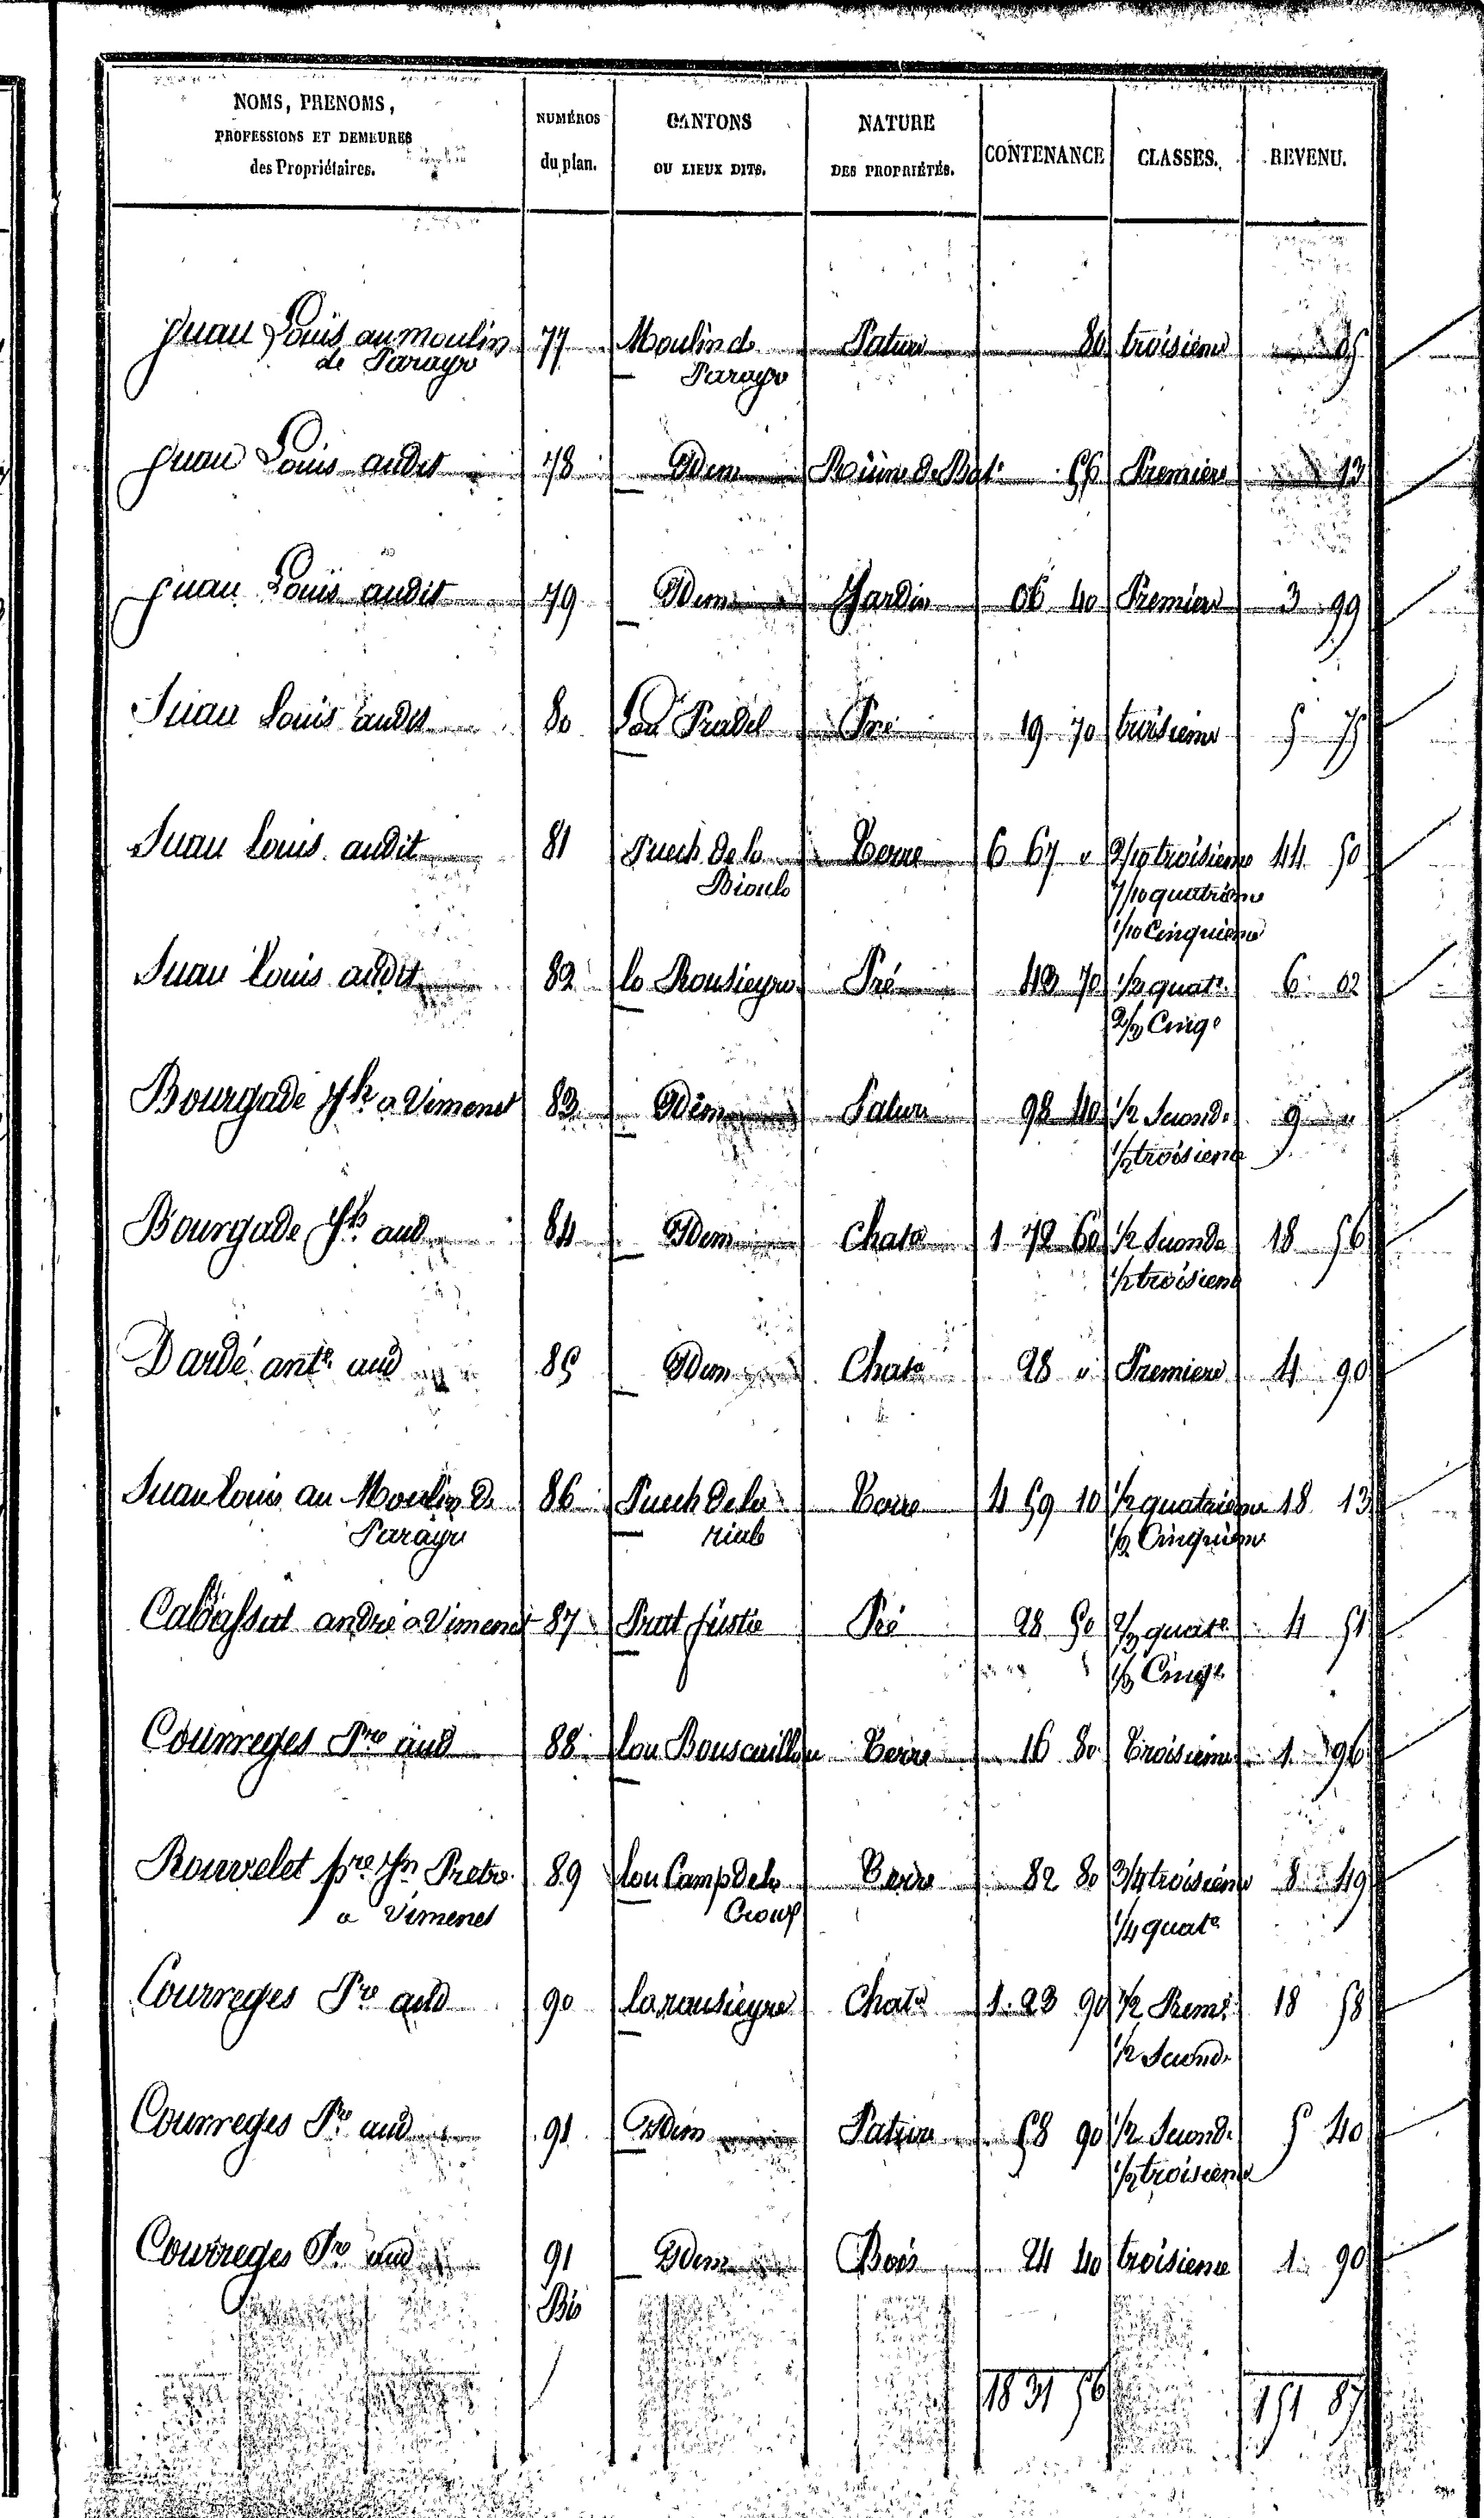 NOMS, PRENOMS,
PROFESSIONS ET DEMEURES
des Propriétaires.
NUMÉROS
du plan.
CANTONS
OU LIEUX DITS.
NATURE
DES PROPRIÉTÉS.
CONTENANCE
CLASSES.
REVENU.
Juau Louis au moulin 77 Moulin de Pature 80 troisieme 05
de Parayre Parayre
Juau Louis audit 78 Idem Ruine de Bat. 56 Premiere 13
Juau Louis audit 79 Idem Jardin 06 40 Premiere 3 99
Juau Louis audit 80 Lou Pradel Pré 19 70 troisieme 5 75
Juau Louis audit 81 Puech de la Terre 6 67 " 2/10 troisieme 44 50
7/10 quatrieme
1/10 Cinquieme
Juau Louis audit 82 la Rousieyre Pré 43 70 quat. 6 02
Cinq.
Bourgade Jh a Vimenet 83 Idem Pature 98 40 1/2 Second. 9 "
1/2 troisieme
Bourgade Jh aud 84 Idem Chate 1 72 60 1/2 Seconde 18 56
1/2 troisieme
Dardé ante aud 85 Idem Chate 28 " Premiere 4 90
Juau Louis au Moulin de 86 Puech de la Terre 4 59 10 1/2 quatrieme 18 13
Parayre 1/2 Cinquieme
andré a Vimenet 87 Prat Pré 28 50 2/3 quate 4 51
1/3 Cinqe
Courreges Pre aud 88 lou Bouscaillou Terre 16 80 Troisieme 1 96
Rouvelet pre Jn Pretre 89 lou Camp de la Terre 82 80 3/4 troisieme 8 49
a Vimenet Croux 1/4 quate
Courreges Pre aud 90 la rousieyre Chate 1 23 90 1/2 Prem. 18 58
1/2 Second.
Courreges Pre aud 91 Idem Pature 58 90 1/2 Second. 5 40
1/2 troisieme
Courreges Pre aud 91 Idem Bois 24 40 troisieme 1 90
Bis
18 31 56 151 87